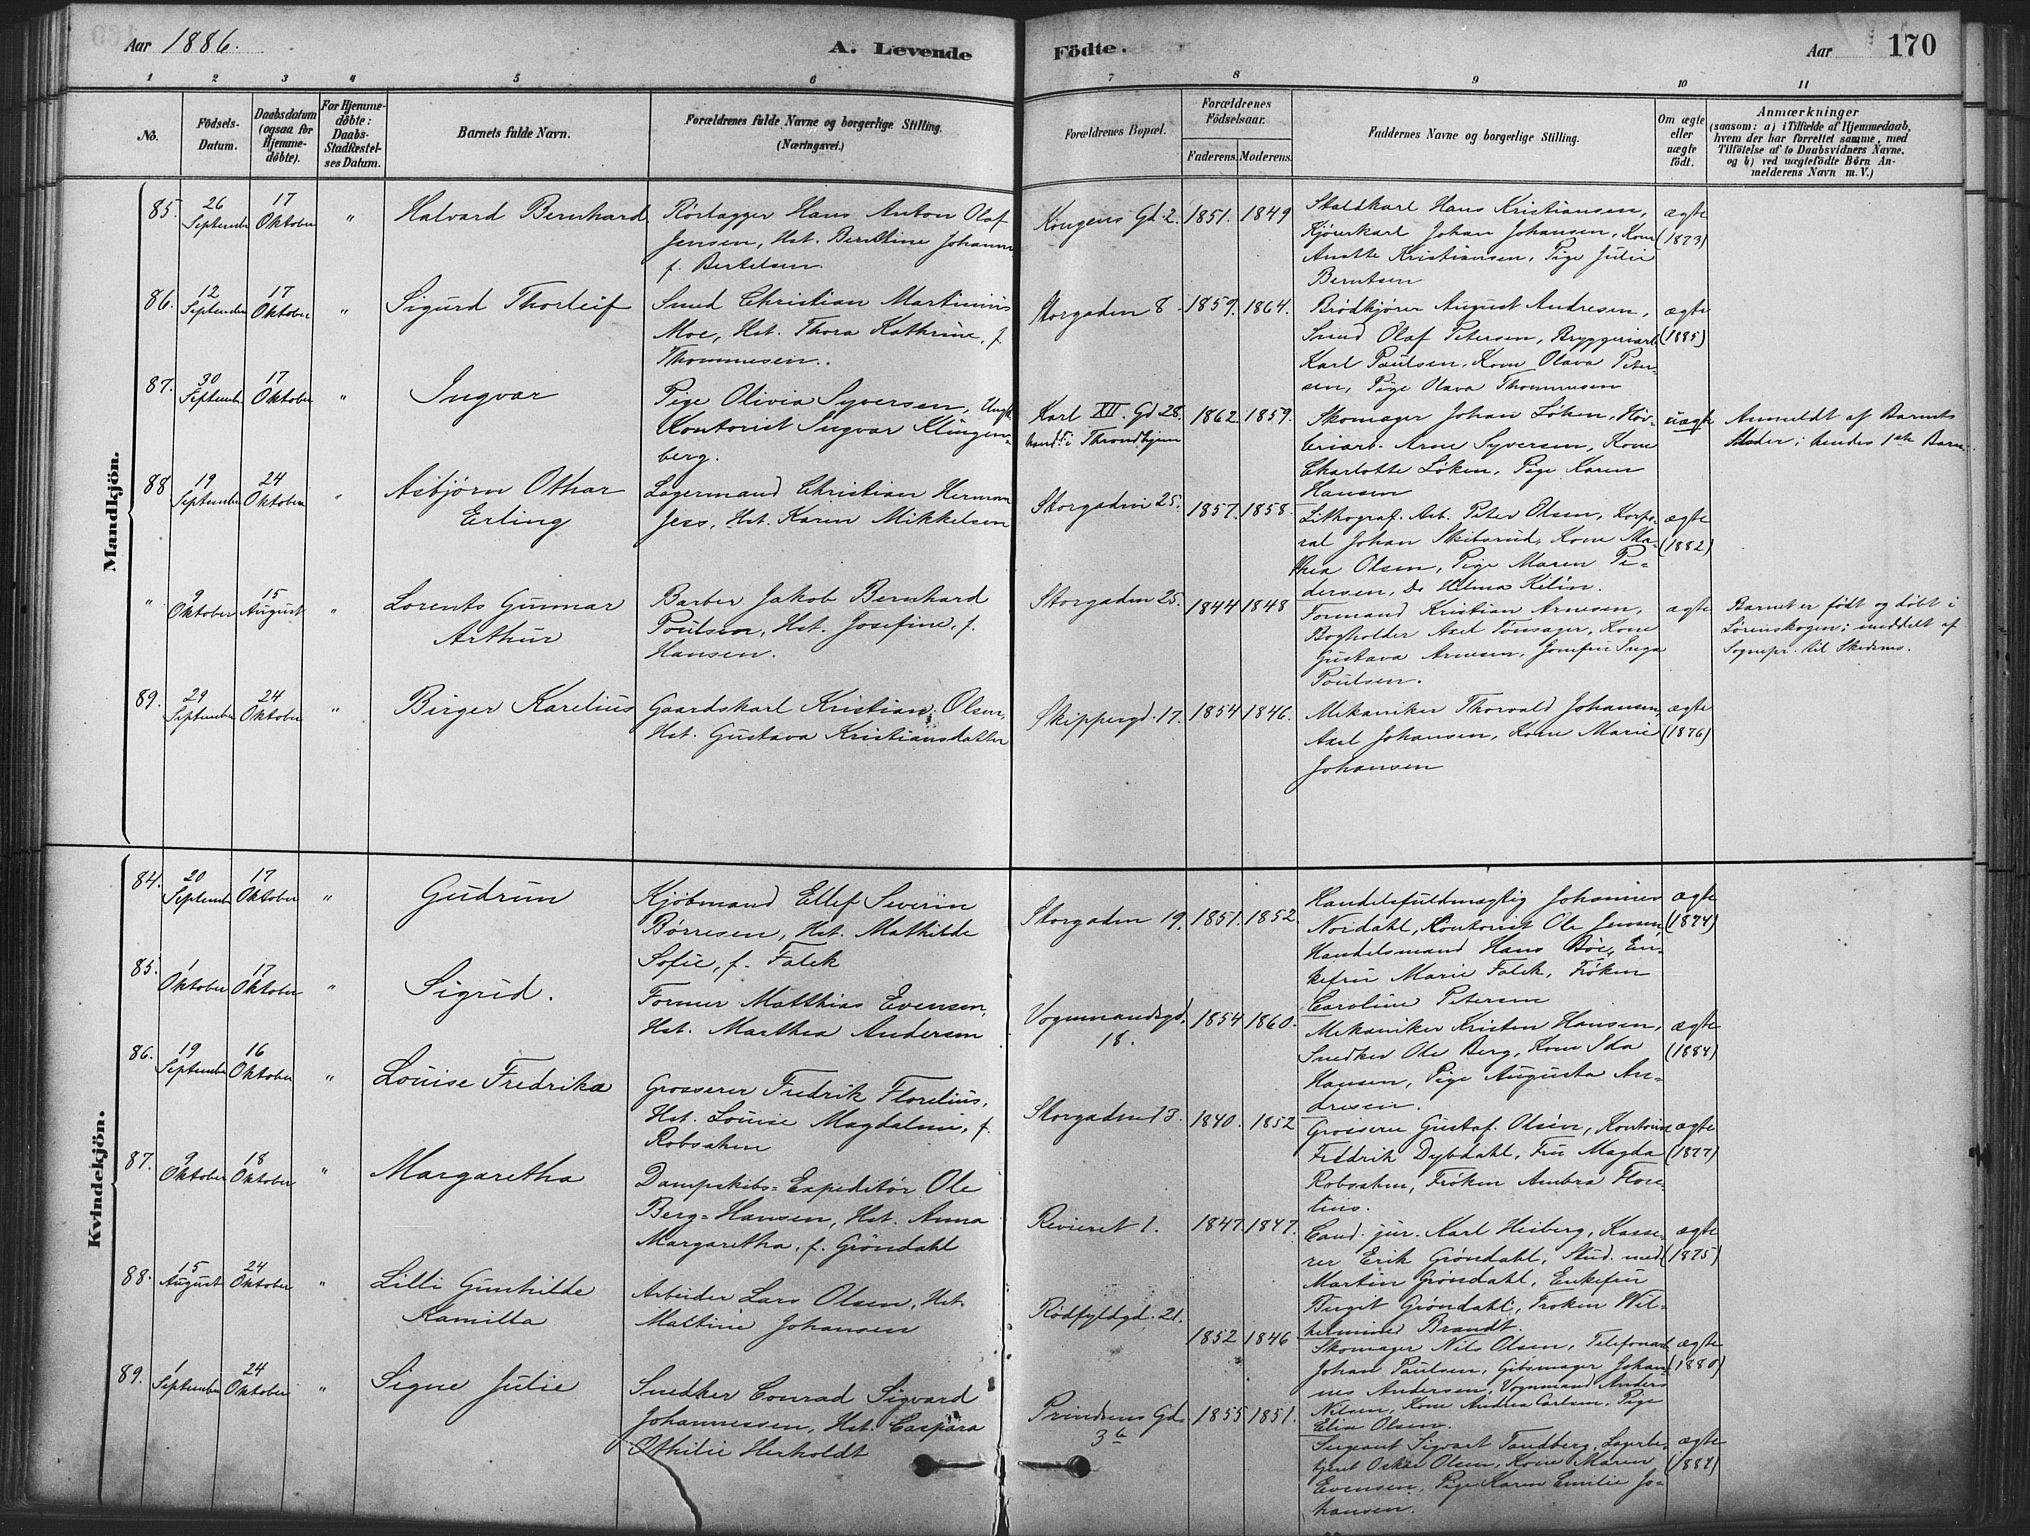 Aar 1886.
A. Levende
Födte.
Aar
170
1 2 3 4 5 6 7 8 9 10 11
No.
Födsels-
Datum.
Daabsdatum
(ogsaa for
Hjemme-
döbte).
For Hjemme-
döbte:
Daabs-
Stadfæstel-
ses Datum.
Barnets fulde Navn.
Forældrenes fulde Navne og borgerlige Stilling.
(Næringsvei.)
Forældrenes Bopæl.
Forældrenes
Födselsaar.
Faderens. Moderens.
Faddernes Navne og borgerlige Stilling.
Om ægte
eller
uægte
födt.
Anmærkninger
(saasom: a) i Tilfælde af Hjemmedaab,
hvem der har forrettet samme, med
Tilföielse af to Daabsvidners Navne,
og b) ved uægtefödte Börn An-
melderens Navn m. V.)
Mandkjön.
85.
26
September
17
Oktober
"
Halvard Bernhard
Rörlægger Hans Anton Olaf
Jensen, Hst. Berntine Johanne
f. Bertelsen.
Kongens Gd. 2.
1851.
1849
Staldkarl Hans Kristiansen,
Kjörerkarl Johan Johansen, Kone
Anette Kristiansen, Pige Julie
Berntsen
ægte
(1873)
86.
12
September
17
Oktober
"
Sigurd Thorleif
Smed Christian Martinius
Moe, Hst. Thora Kathrine, f.
Thommesen.
Storgaden 8.
1859.
1864.
Brødkjører August Andresen,
Smed Olaf Petersen, Bryggeriarb.
Karl Paulsen, Kone Olava Peter-
sen, Pige Olava Thommesen
ægte
(1885)
87.
30
September
17
Oktober
"
Ingvar
Pige Olivia Syversen, Ungk.
Kontorist Ingvar Klingen-
berg.
Karl XII. Gd 28.
i Throndhjem
1862.
1859.
Skomager Johan Løken,
Arne Syversen, Kone
Charlotte Løken, Pige Karen
Hansen
uægte
Anmeldt af Barnets
Moder; hendes 1ste Barn.
88
19
September
24
Oktober
"
Asbjørn Othar
Erling
Lagermand Christian Herman
Jess, Hst. Karen Mikkelsen
Storgaden 25.
1857.
1858.
Lithograf. Arb. Peter Olsen, Korpo-
ral Johan Skibsrud, Kone Ma-
thea Olsen, Pige Maren Pe-
dersen, Do Helma Kelin.
ægte
(1882)
"
9
Oktober
15
August
"
Lorents Gunnar
Arthur
Barber Jakob Bernhard
Poulsen, Hst. Josefine, f.
Hansen.
Storgaden 25.
1844
1848
Formand Kristian Arnesen,
Bogholder Axel Tonsager, Kone
Gustava Arnesen, Jomfru Inga
Poulsen.
ægte
Barnet er født og døbt i
Lørenskogen; meddelt af
Sognepr. til Skedsmo.
89.
29
September
24
Oktober
"
Birger Karelius
Gaardskarl Kristian Olsen,
Hst. Gustava Kristiansdatter
Skippergd. 17.
1854
1846.
Mekaniker Thorvald Johansen,
Axel Johansen, Kone Marie
Johansen
ægte
(1876)
Kvindekjön.
84.
20
September
17
Oktober
"
Gudrun
Kjøbmand Ellef Severin
Børresen, Hst. Mathilde
Sofie, f. Falck
Storgaden 19.
1851.
1852.
Handelsfuldmægtig Johannes
Nordahl, Kontorist Ole Jensen,
Handelsmand Hans Böe, En-
kefru Marie Falck, Frøken
Caroline Petersen
ægte
(1874)
85.
1
Oktober
17
Oktober
"
Sigrid.
Former Matthias Evensen,
Hst. Marthea Andersen
Vognmandsgd.
18.
1854
1860.
Mekaniker Kristen Hansen,
Snedker Ole Berg, Kone Ida
Hansen, Pige Augusta An-
dresen.
ægte
(1884)
86.
19
September
16
Oktober
"
Louise Fredrika
Grosserer Fredrik Florelius,
Hst. Louise Magdalene, f.
Robsahm
Storgaden 13.
1840.
1852
Grosserer Gustaf Olsön,
Fredrik Dybdahl, Fru Magda
Robsahm, Frøken Ambra Flore-
lius.
ægte
(1877)
87.
9
Oktober
18
Oktober
"
Margaretha
Dampskibs-Expeditör Ole
Berg-Hansen, Hst. Anna
Margaretha, f. Gröndahl
Revieret 1.
1847.
1847.
Cand. jur. Karl Heiberg, Kasse-
rer Erik Gröndahl, Stud. med.
Martin Gröndahl, Enkefru
Birgit Gröndahl, Frøken Wil-
helmine Brandt.
ægte
(1875)
88.
15
August
24
Oktober
"
Lilli Gunhilde
Kamilla
Arbeider Lars Olsen, Hst.
Mattine Johansen
Rödfyldgd. 21.
1852
1846
Skomager Nils Olsen, Telefonarb.
Johan Paulsen, Gibsmager Johan-
nes Andersen, Vognmand Anders
Nilsen, Kone Andrea Carlsen, Pige
Elise Olsen.
ægte
(1880)
89.
1
September
24
Oktober
"
Signe Julie
Snedker Conrad Sigvard
Johannessen, Hst. Caspara
Othilie Herholdt
Prindsens Gd.
3b
1855
1851.
Sergeant Sigvart Tandberg, Lagerbe-
tjent Oskar Olsen, Kone Maren
Evensen, Pige Karen Emilie Jo-
hansen.
ægte